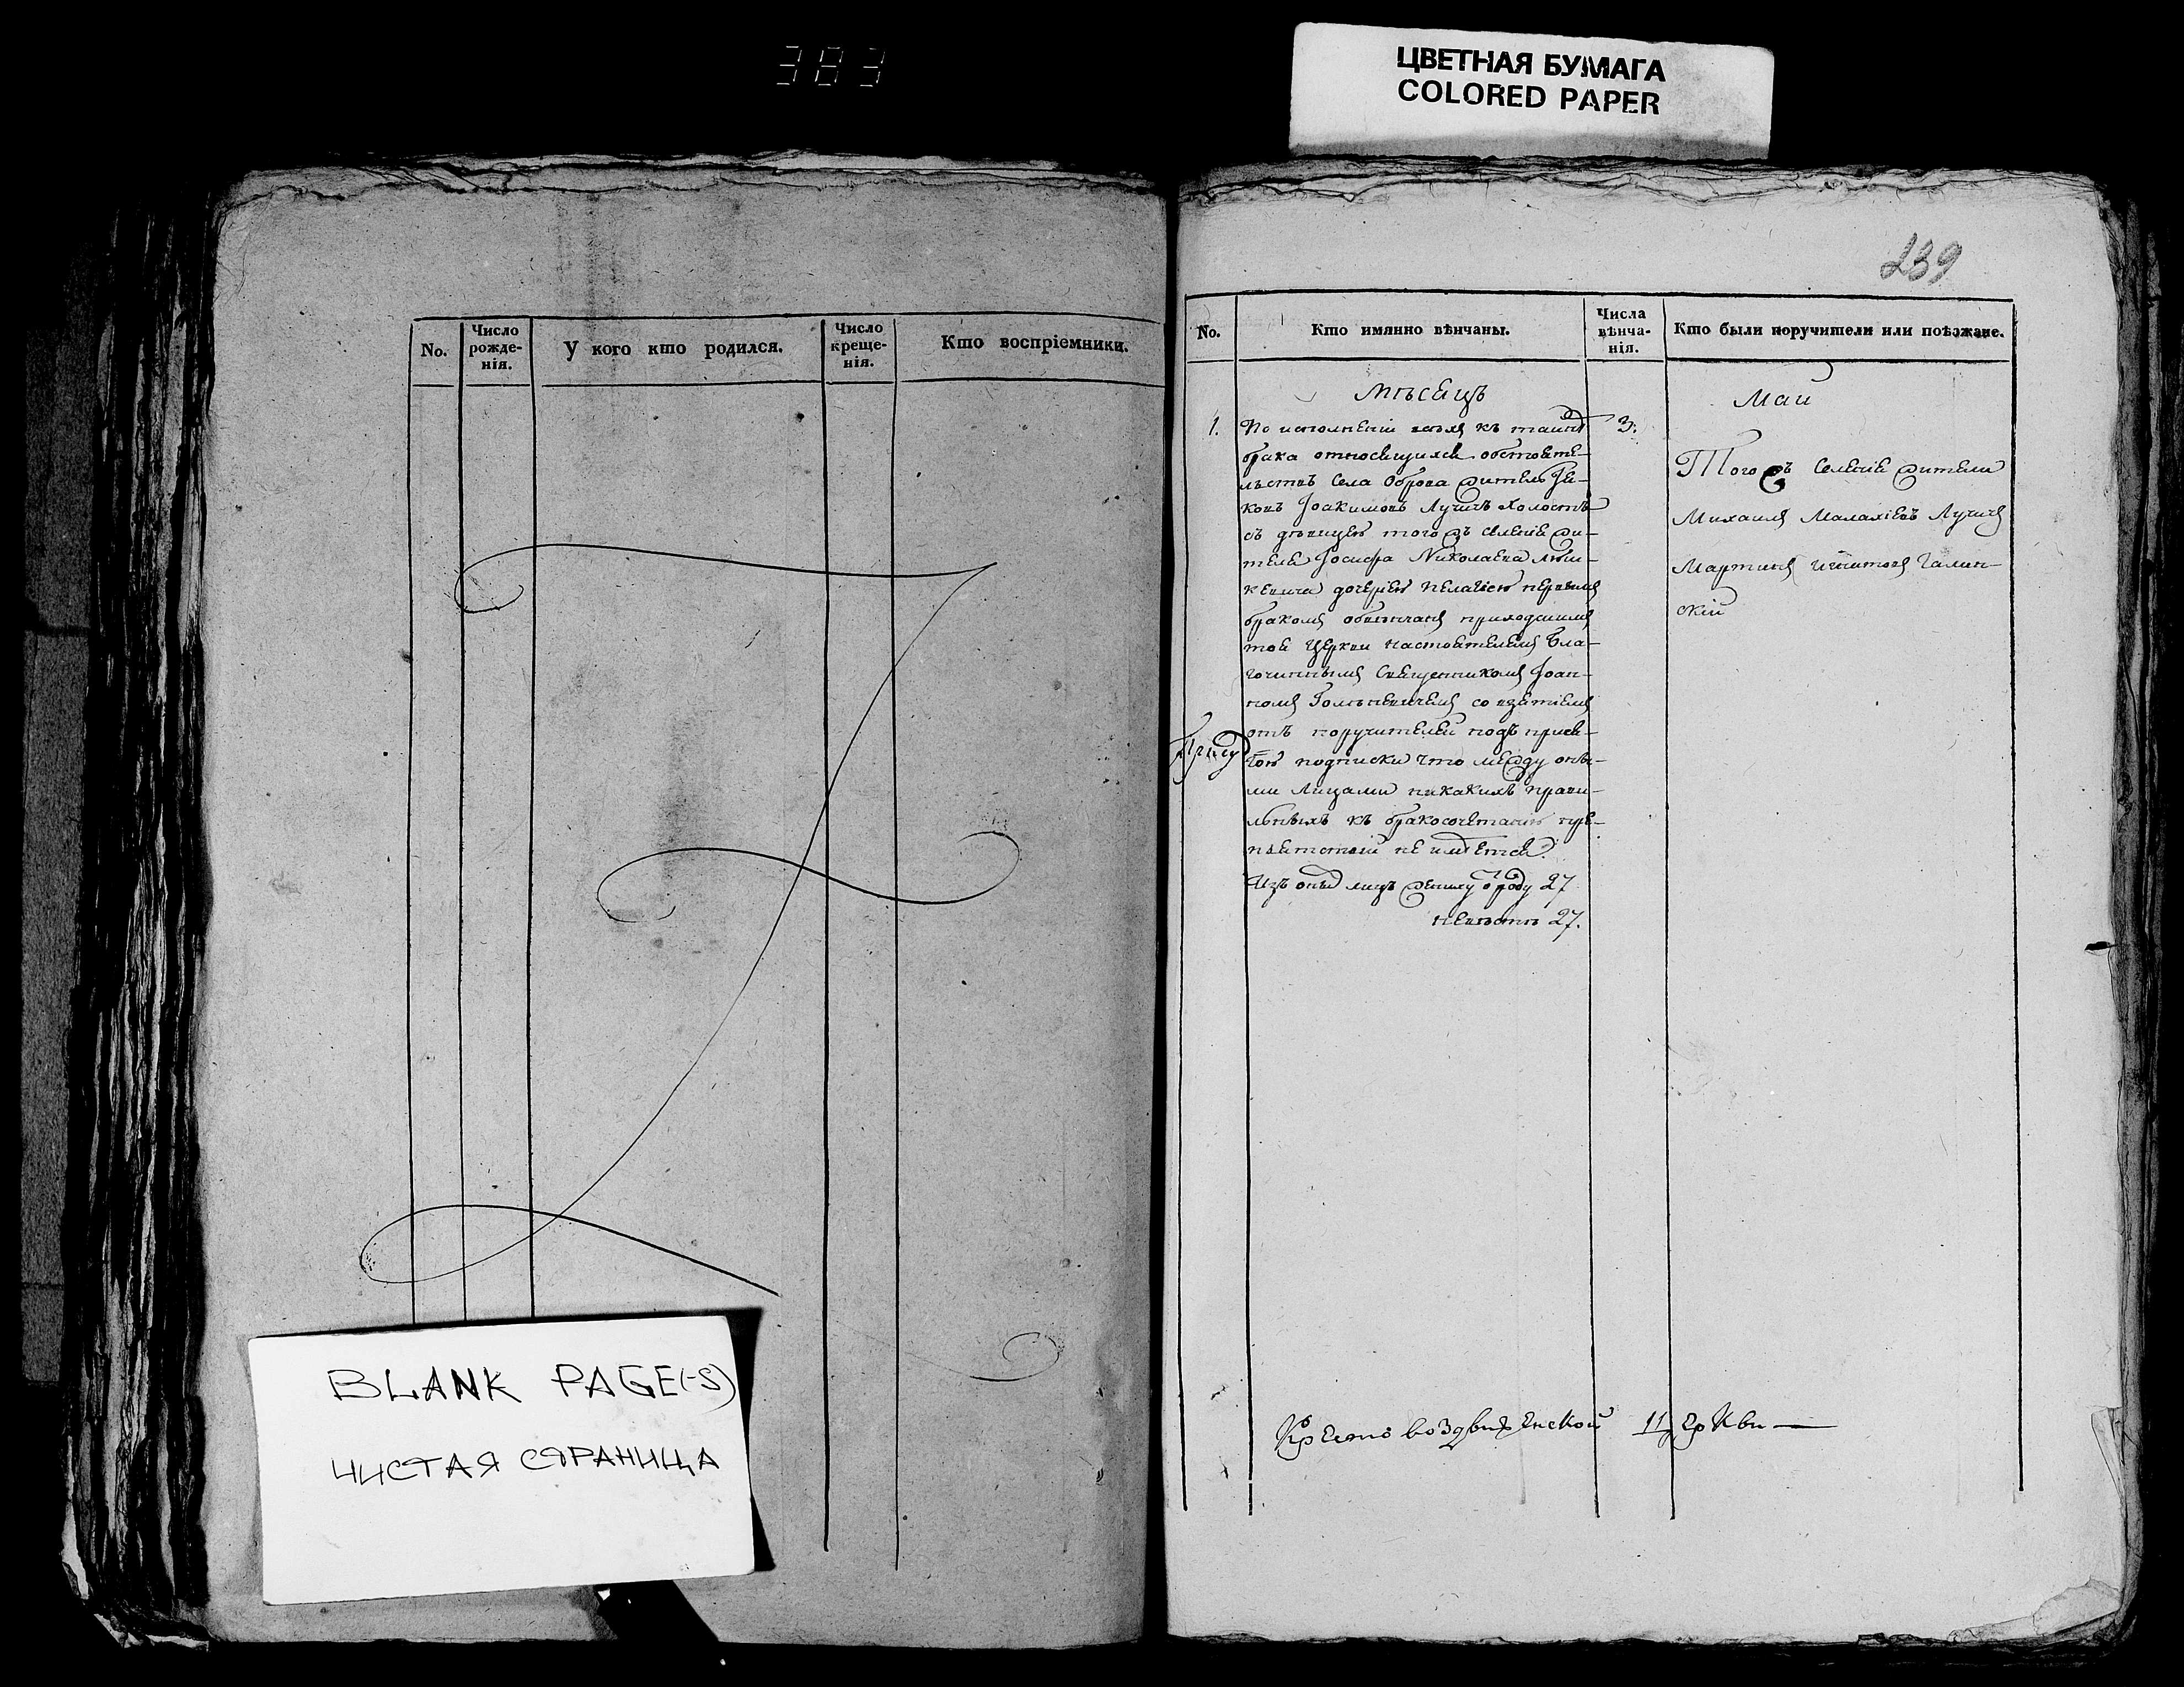 383
ЦВЕТНАЯ БУМАГА
COLORED PAPER
No.
Число рожде-нія.
У кого кто родился.
Число креще-нія.
Кто воспріемники.
BLANK PAGE(-S)
ЧИСТАЯ СТРАНИЦА
239
No.
Кто имянно вѣнчаны.
Числа вѣнча-нія.
Кто были поручители или поѣзжане.
Мѣсецъ
Маи
1. По исполненіи всѣхъ къ таинѣ 3.
брака относящихся обстояте-
льствъ Села Оброва житель
Іоакимовъ Лучичъ Холостъ
съ дѣвицею того жъ селенія жи-
теля Іосифа Николаева
дочерею Пелагіею первымъ
бракомъ обвѣнчанъ приходскимъ
той Церкви настоятелемъ Бла-
гочиннымъ Священникомъ Іоан-
номъ со взятіемъ
отъ поручителей подъ прися-
гою подписки что между оны-
ми лицами никакихъ прави-
льныхъ къ бракосочетанію пре-
пятствій не имѣется.
Изъ оныхъ лицъ жениху 27
невѣстѣ 27.
Того жъ Селенія жители
Михаилъ Малахіевъ Лучичъ
Мартинъ Галин-
скій
Кресто воздвиженской Церкви